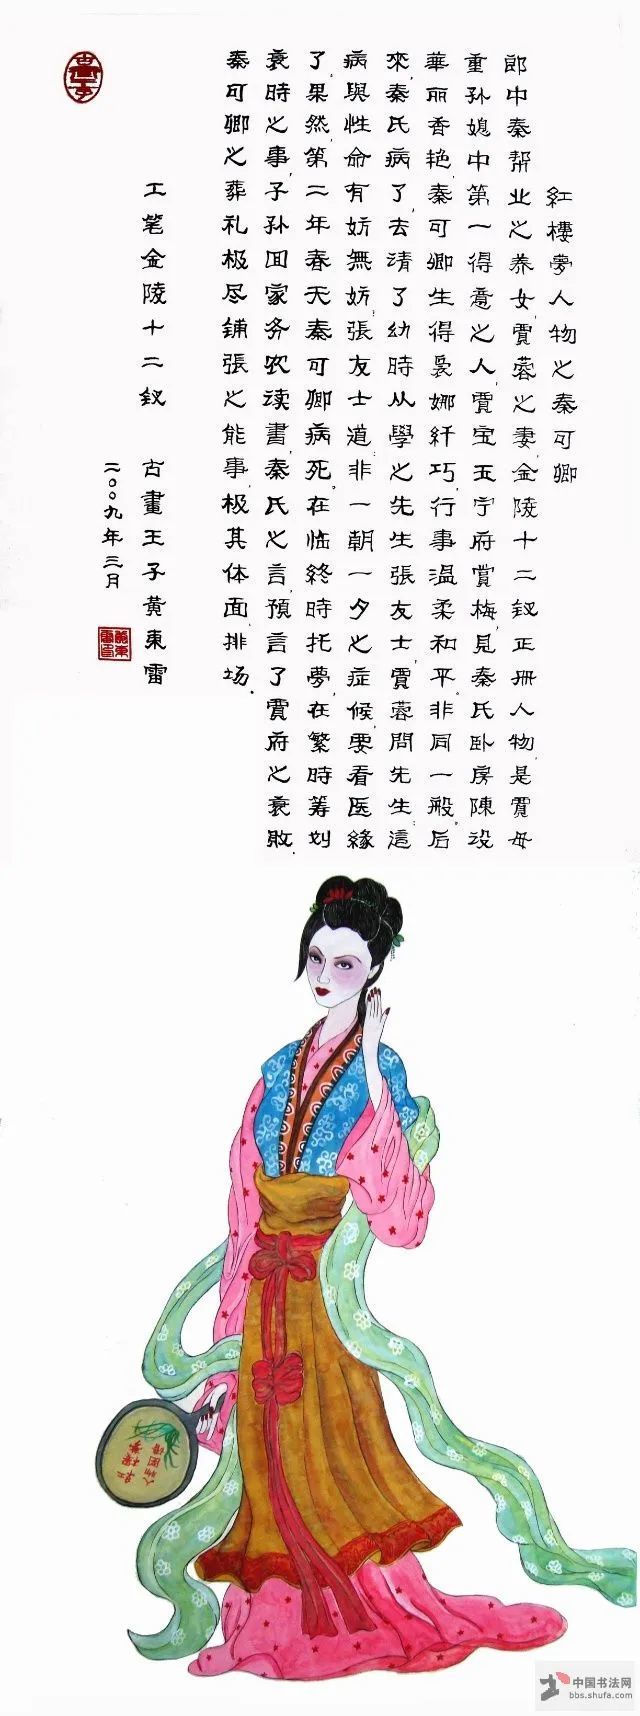 紅樓夢人物之秦可卿
郎中秦帮业之养女賈蓉之妻,金陵十二釵正册人物,是賈母
重孙媳中第一得意之人,賈宝玉宁府賞梅,見秦氏卧房陳设
華丽香艳,秦可卿生得袅娜纤巧,行事温柔和平。非同一般。后
來,秦氏病了,去請了幼時从學之先生張友士,賈蓉問先生:這
病與性命有妨無妨:張友士道:非一朝一夕之症候,要看医緣
了。果然,第二年春天秦可卿病死。在临終時托夢,在繁時筹划
衰時之事,子孙回家务农读書,秦氏之言,預言了賈府之衰敗.
秦可卿之葬礼极尽鋪張之能事,极其体面、排场.
工笔金陵十二釵 古畫王子黄東雷
二〇〇九年三月
紅樓夢
人物图譜
中国书法网
bbs.shufa.com